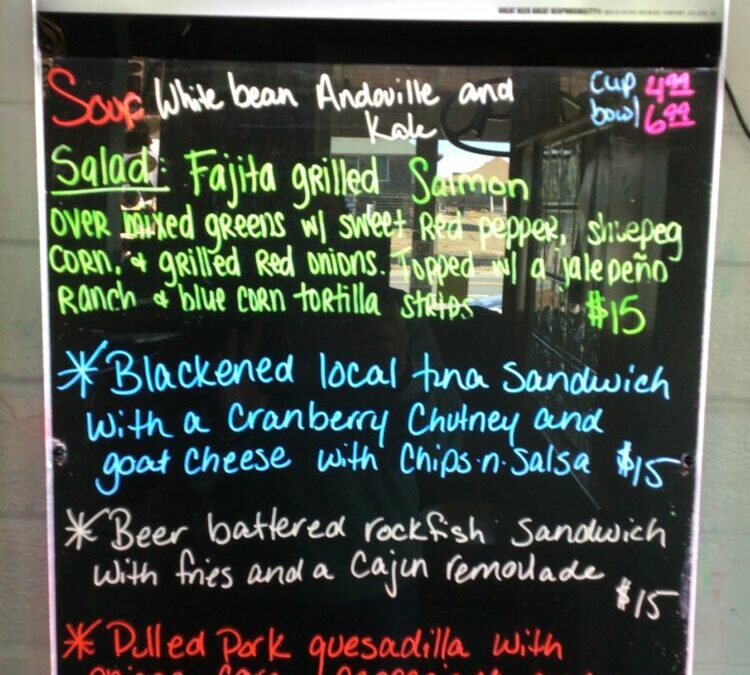 GREAT BEER GREAT RESPONSIBILITY
Soup White bean Andouille and cup 4.99
Kale bowl 6.99
Salad: Fajita grilled Salmon
over mixed greens w/ sweet Red pepper, shoepeg
corn, & grilled Red onions. Topped w/ a jalepeño
Ranch & blue corn tortilla strips $15
*Blackened local tuna sandwich
with a cranberry chutney and
goat cheese with chips-n-salsa $15
*Beer battered rockfish sandwich
with fries and a Cajun remoulade
$15
*Pulled Pork quesadilla with